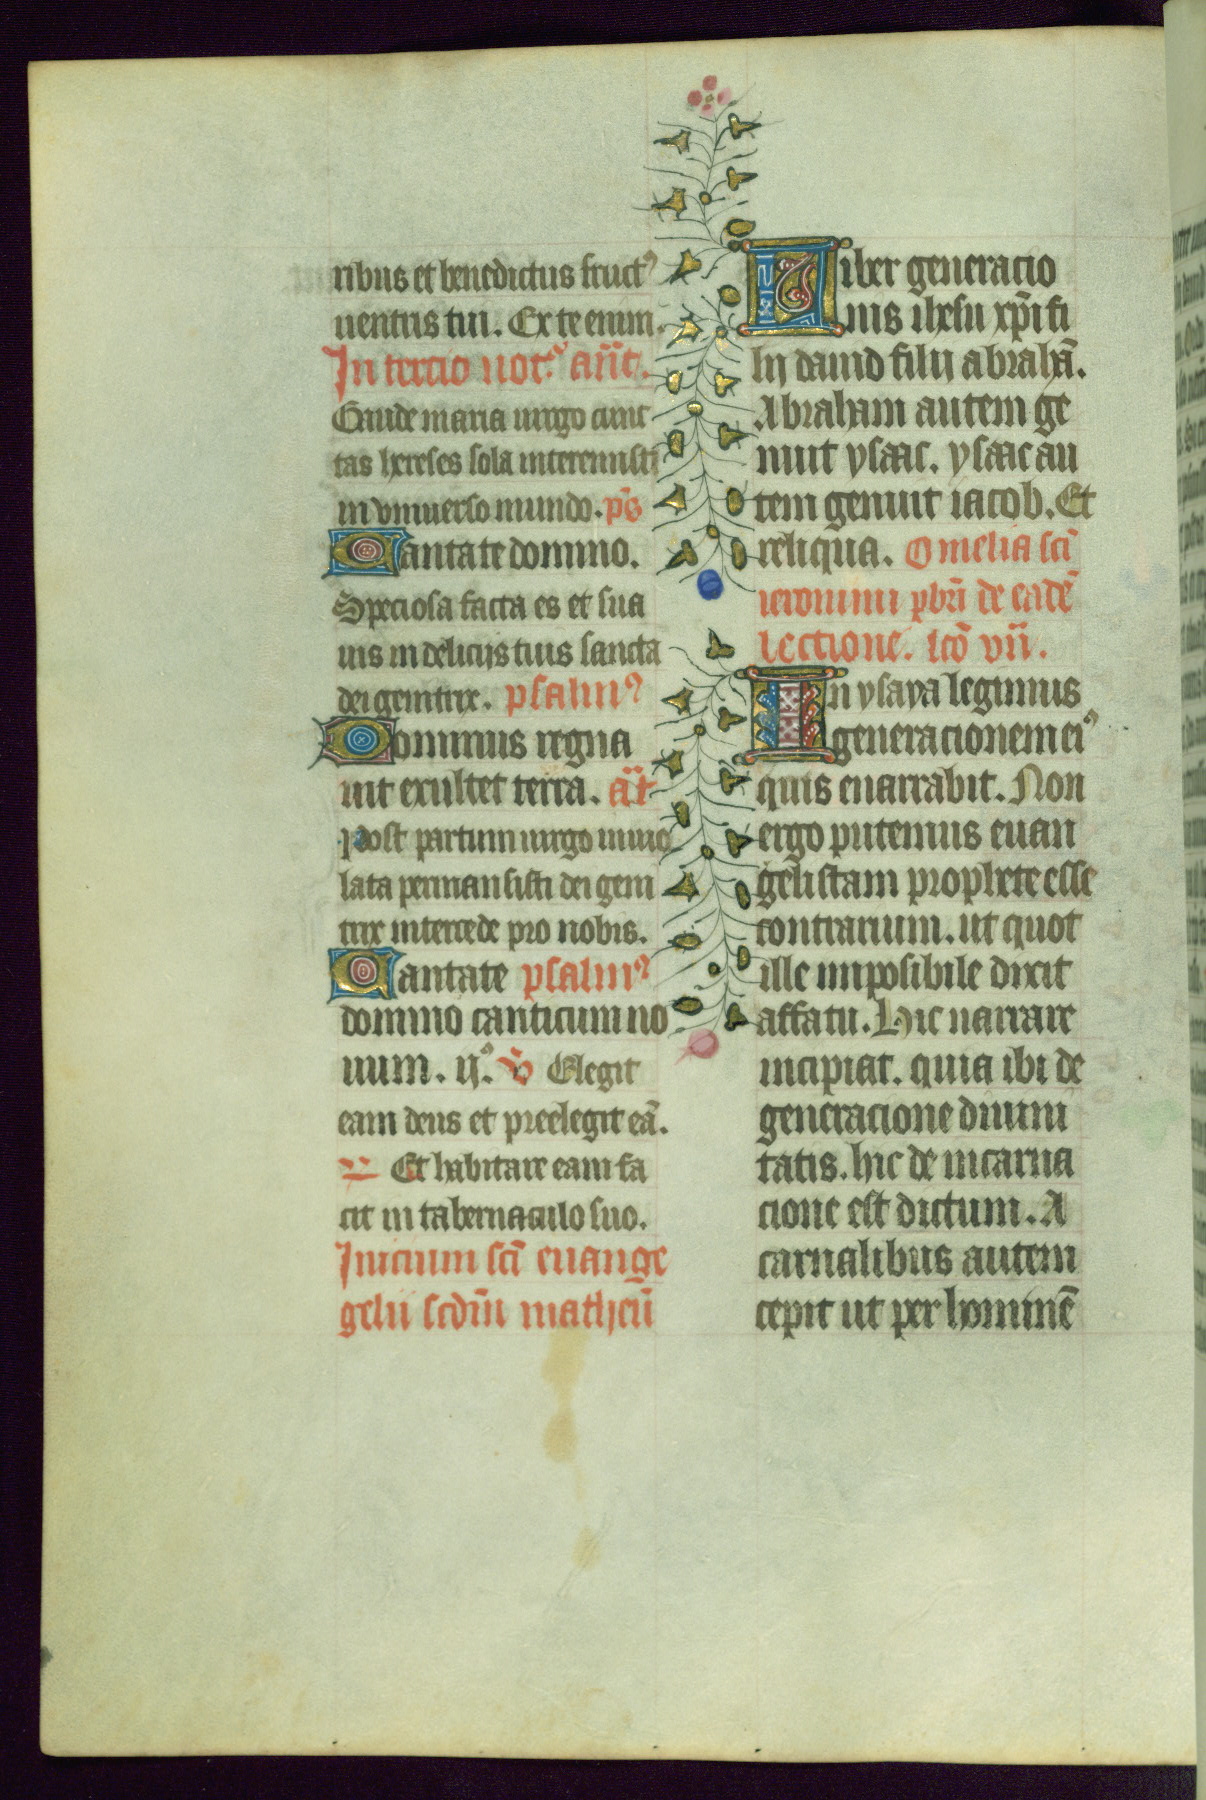 ribus et benedictus fruct⁹
uentris tui. Ex te enim.
In tercio noct⁹ añt.
Gaude maria uirgo cunc
tas hereses sola interemisti
in vniuerso mundo. p̄s
Cantate domino.
Speciosa facta es et sua
uis in delicijs tuis sancta
dei genitrix. psalm⁹
Dominus regna
uit exultet terra. a᷑t
Post partum uirgo inuio
lata permansisti dei geni
trix intercede pro nobis.
Cantate psalm⁹
domino canticum no
uum. ij.⁹ v̄ Elegit
eam deus et preelegit eā.
Et habitare eam fa
cit in tabernaculo suo.
Inicium sc̄i euange
gelii scdm̄ matheū
Liber generacio
nis ihesu xp̄i fi
lij dauid filij abrahā.
Abraham autem ge
nuit ysaac. ysaac au
tem genuit iacob. Et
reliqua. Omelia sc̄i
ieronimi pbr̄i de eadē
lectione. lcō vii.
In ysaya legimus
generacionem ei⁹
quis enarrabit. Non
ergo putemus euan
gelistam prophete esse
contrarium. ut quot
ille imposibile dixit
affatu. Hic narrare
incipiat. quia ibi de
generacione diuini
tatis. hic de incarna
cione est dictum. A
carnalibus autem
cepit ut per hominē